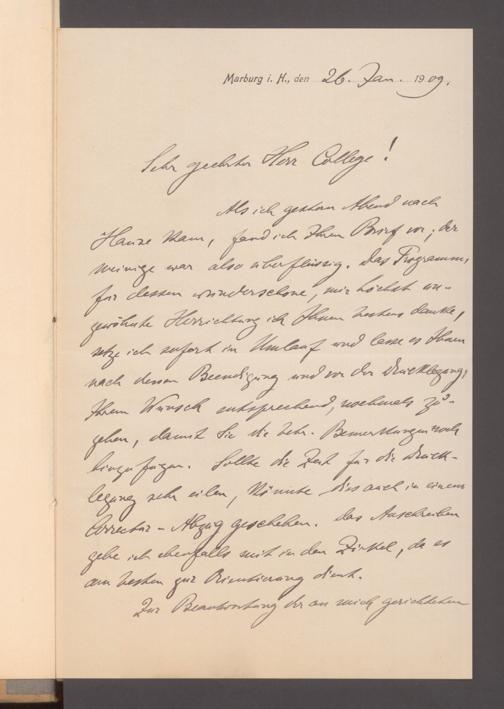 Marburg i. H., den 26. Jan. 1909.
Sehr geehrter Herr College!
Als ich gestern Abend nach
Hause kam, fand ich Ihren Brief vor; der
meinige war also überflüssig. Das Programm,
für dessen wunderschöne, mir höchst un-
gewohnte Herrichtung ich Ihnen bestens danke,
setze ich sofort in Umlauf und lasse es Ihnen
nach dessen Beendigung und vor der Drucklegung,
Ihrem Wunsch entsprechend, nochmals zu-
gehen, damit Sie die betr. Bemerkungen noch
hinzufügen. Sollte die Zeit für die Druck-
legung sehr eilen, könnte dies auch in einem
Correctur-Abzug geschehen. Das Anschreiben
gebe ich ebenfalls mit in den Zirkel, da es
am besten zur Orientierung dient.
Zur Beantwortung der an mich gerichteten